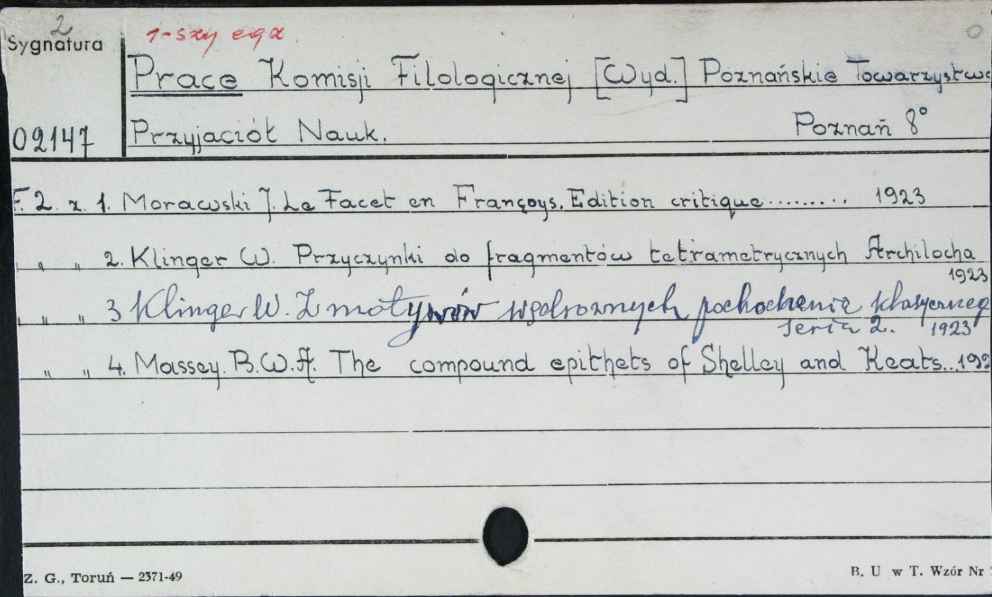 2
Sygnatura
1-szy egz.
Prace Komisji Filologicznej [Wyd.] Poznańskie Towarzystwo
02147 Przyjaciół Nauk. Poznań 8°
T. 2. z. 1. Morawski J. Le Facet en Françoys. Edition critique......... 1923
" " " 2. Klinger W. Przyczynki do fragmentów tetrametrycznych Archilocha
1923
" " " 3 Klinger W. Z motywów wędrownych pochodzenia klasycznego
seria 2. 1923
" " 4. Massey. B.W.A. The compound epithets of Shelley and Keats..192
Z. G., Toruń — 2371-49
B. U w T. Wzór Nr